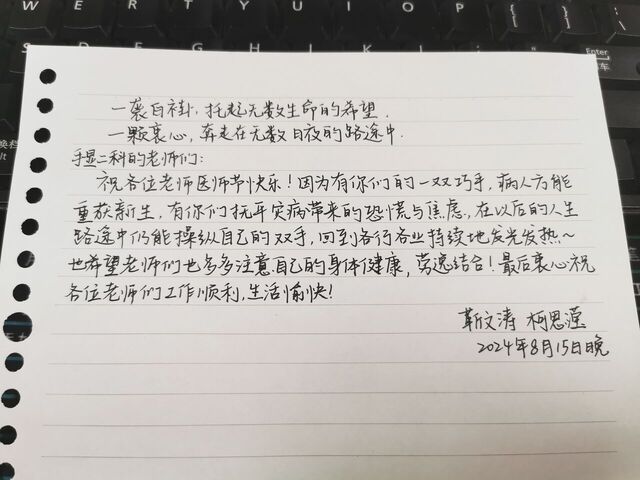 W E R T Y U I O P { }
Enter
一袭白褂,托起无数生命的希望.
一颗衷心,奔走在无数日夜的路途中.
手显二科的老师们:
祝各位老师医师节快乐!因为有你们的一双巧手,病人方能
重获新生,有你们抚平灾病带来的恐慌与焦虑,在以后的人生
路途中仍能操纵自己的双手,回到各行各业持续地发光发热~
也希望老师们也多多注意自己的身体健康,劳逸结合!最后衷心祝
各位老师们工作顺利,生活愉快!
靳文涛 柯思滢
2024年8月15日晚